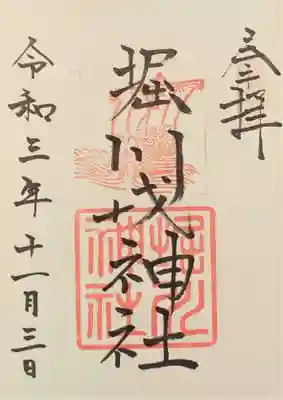 参拝
堀川戎神社
令和三年十一月三日
堀川
神社